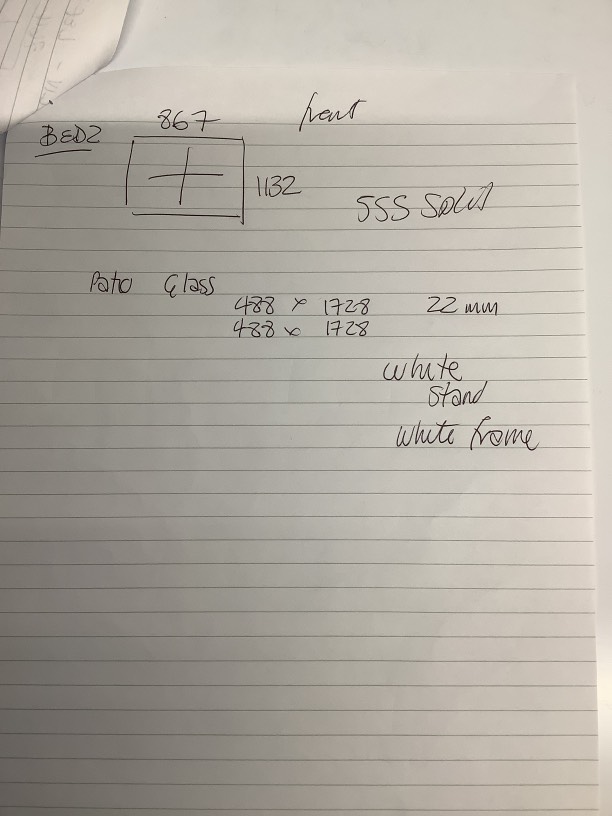 BED2
867
front
1132
Patio Glass
488 x 1728 22 mm
488 x 1728
white
stand
white frame